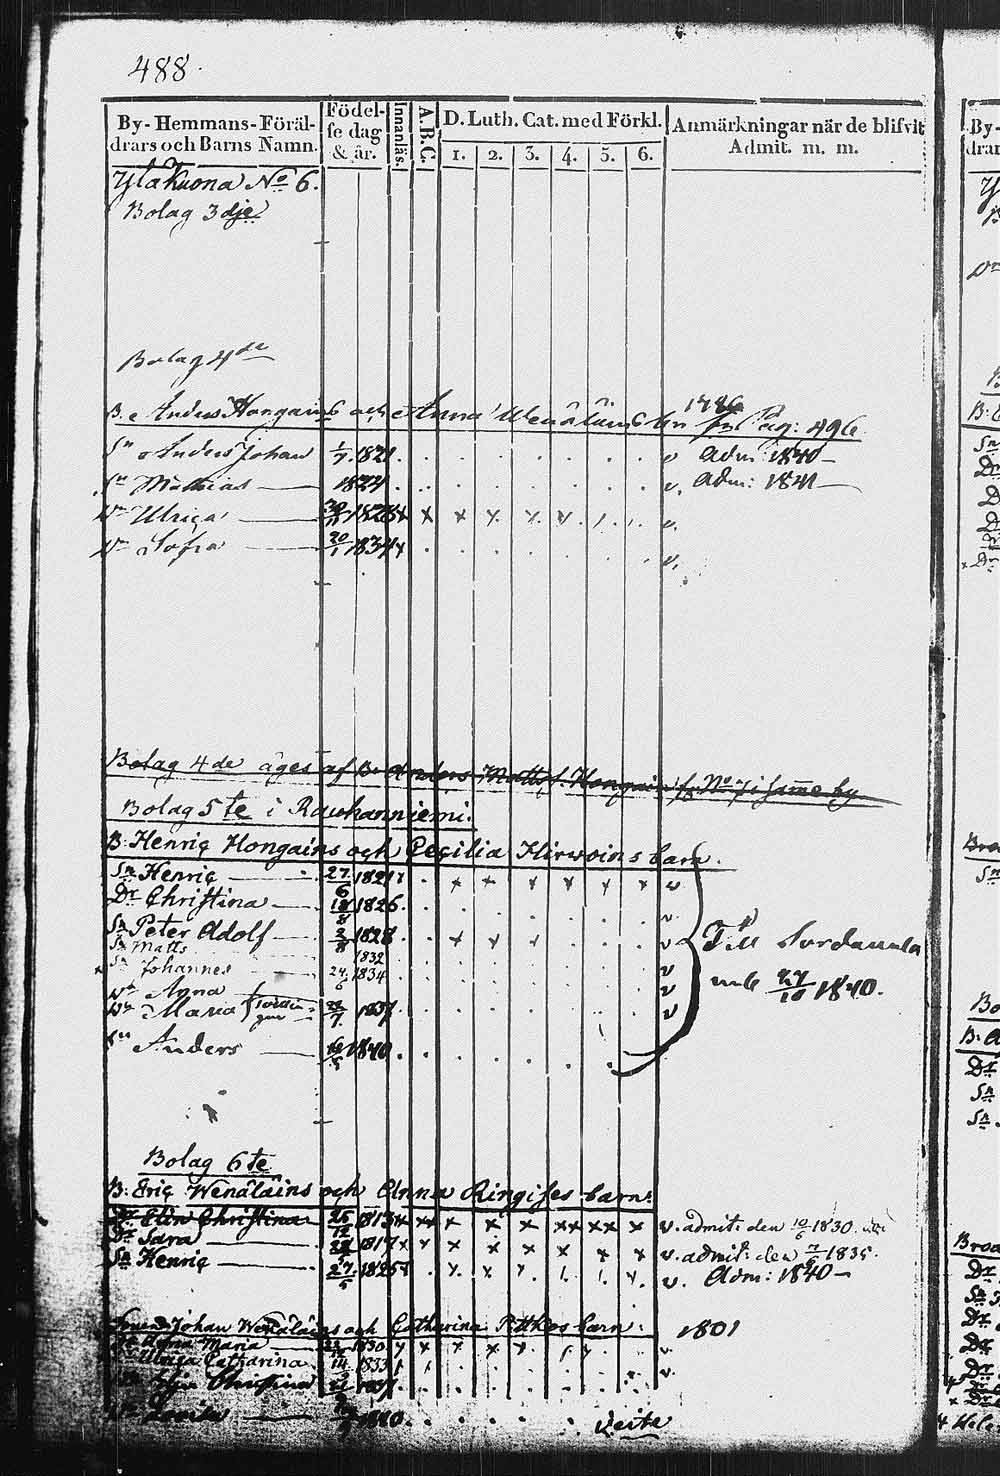 488.
By-Hemmans-Föräl-drars och Barns Namn.
Födel-se dag & år.
Innanläs.
A.B.C.
D. Luth. Cat. med Förkl.
1. 2. 3. 4. 5. 6.
Anmärkningar när de blifvit Admit. m. m.
Ylakuona No 6.
Bolag 3dje
Bolag 4de
B. Anders Hongains och Anna Wenäläins 1786 pag: 496
Sn Anders Johan 1/7 1821 v Adm: 1840
Sn Mathias 1824 v. Adm: 1841
Dr Ulrica 1828 v.
Dr Sofia 20/1 1834 v.
Bolag 4de äges af B. Anders Hongain No 7 i samme by
Bolag 5te i Rauhanniemi.
B: Henric Hongains och Cecilia Hirwoins barn.
Sn Henric 27/6 1821 v
Dr Christina 18/8 1826. v
Sn Peter Adolf 2/8 1828 v
Sn Matts 1832
Sn Johannes 24/6 1834 v
Dr Anna v
Dr Maria 22/7 1837 v
Till Sordavala
27/10 1840.
Sn Anders 1840
Bolag 6te
B: Eric Wenäläins och Anna Ringises barn:
Dr Elin Christina 25/12 1813 v. admit: den 10/6 1830.
Dr Sara 1817 v. admit: den 7/6 1835.
Sn Henric 27/5 1825 v. Adm: 1840
Johan Wenäläins och Catharina barn: 1801
Dr Anna Maria 1830 v
Dr Ulrica Catharina 14 1833 v
Christina
Dr Lovisa 1840